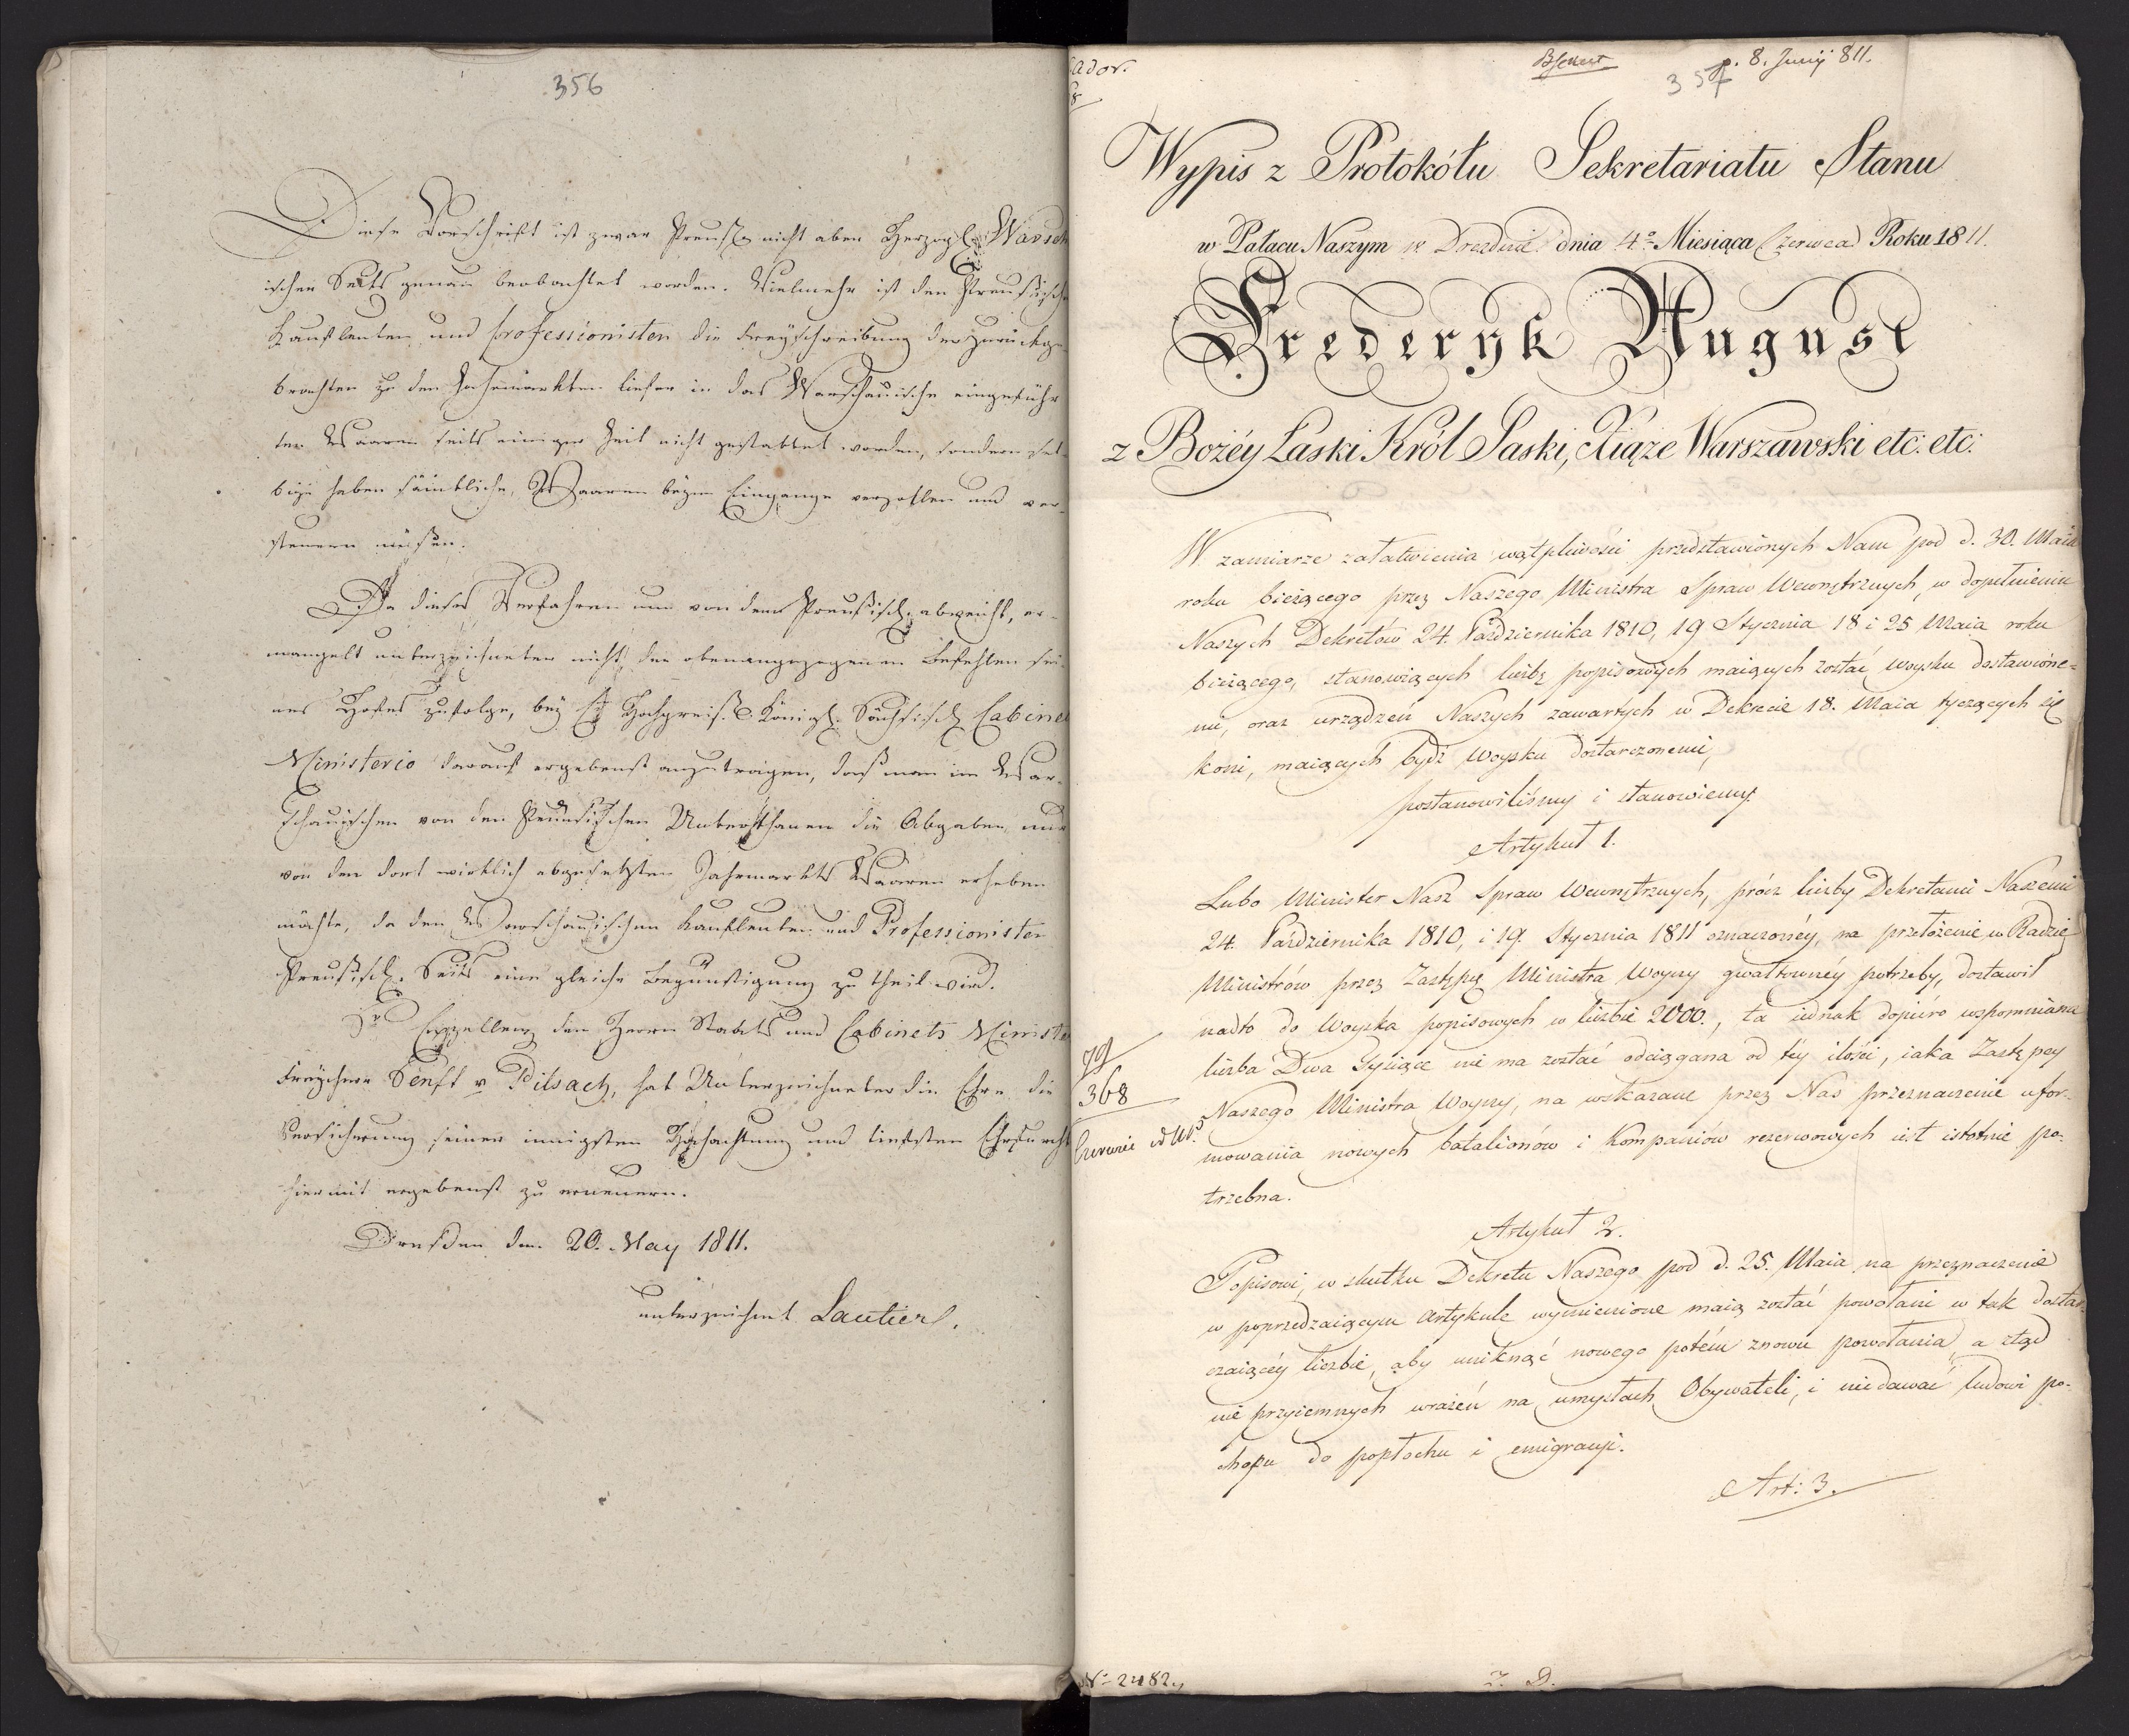 356
Diese Vorschrift ist zwar Preuß. nicht aber Herzogl. Warsch
ischer Seits genau beobachtet worden. Vielmehr ist den Preußische
Kaufleuten und Professionisten die Freyschreibung der zurückge
brachten zu den Jahrmärkten hieher in das Warschauische eingeführ
ten Waaren seits einiger Zeit nicht gestattet worden, sondern sel
bige haben sämtliche Waaren beym Eingange verzollen und ver
steuern müßen.
Da dieses Verfahren nun von dem Preußisch. abweicht, er
mangelt unterzeichneter nicht, den obenangezogenen Befehlen sei
nes Hofes zufolge, bey Hochpreisl. Königl. Sächsisch. Cabine
Ministerio darauf ergebenst anzutragen, daß man im War
schauischen von den Preußischen Unterthanen die Abgaben nur
von den dort wirklich abgesetzten Jahrmarkts Waaren erheben
möchte, da den Warschauischen Kaufleuten und Professionisten
Preußisch. Seits eine gleiche Begünstigung zu theil wird.
Sr Exzellenz dem Herrn Staats und Cabinets Ministe
Freyherr Senft v Pilsach, hat Unterzeichneter die Ehre die
Versicherung seiner innigsten Hochachtung und tiefsten Ehrfurcht
hiermit ergebenst zu erneuern.
Dresden den 20. May 1811.
unterzeichnet Lautier.
ador.
p. 8. Junij 811.
357
Wypis z Protokółu Sekretariatu Stanu
w Pałacu Naszym w Dreznie dnia 4º Miesiąca Czerwca Roku 1811.
Frederyk August
z Bożéy Łaski Król Saski, Xiąże Warszawski etc: etc:
W zamiarze załatwienia wątpliwości przedstawionych Nam pod d. 30. Maia
roku bieżącego przez Naszego Ministra Spraw Wewnętrznych, w dopełnieniu
Naszych Dekretów 24. Października 1810, 19 Stycznia 18 i 25 Maia roku
bieżącego, stanowiących liczbę popisowych maiących zostać woysku dostawióne-
mi, oraz urządzeń Naszych zawartych w Dekrecie 18. Maia tyczących się
koni, maiących bydź woysku dostarczonemi,
postanowiliśmy i stanowiemy.
Artykuł 1.
Lubo Minister Nasz Spraw Wewnętrznych, prócz liczby Dekretami Naszemi
24. Października 1810, i 19. Stycznia 1811 oznaczonéy, na przełożenie w Radzie
Ministrów przez Zastępcę Ministra Woyny gwałtownéy potrzeby, dostawił
nadto do Woyska popisowych w liczbie 2000., ta iednak dopiéro wspomniana
liczba Dwa Tysiące nie ma zostać odciągana od téy ilości, iaka Zastępcy
Naszego Ministra Woyny, na wskazane przez Nas przeznaczenie ufor-
mowania nowych batalionów i Kompaniów rezerwowych iest istotnie po-
trzebna.
368
Artykuł 2.
Popisowi, w skutku Dekretu Naszego pod d. 25. Maia na przeznaczenie
w poprzedzaiącym artykule wymienione maią zostać powołani w tak dostar-
czaiącéy liczbie, aby uniknąć nowego potém znowu powołania, a ztąd
nie przyiemnych wrażeń na umysłach Obywateli, i nie dawać ludowi po-
chopu do popłochu i emigracyi.
Art: 3.
Nº 2482